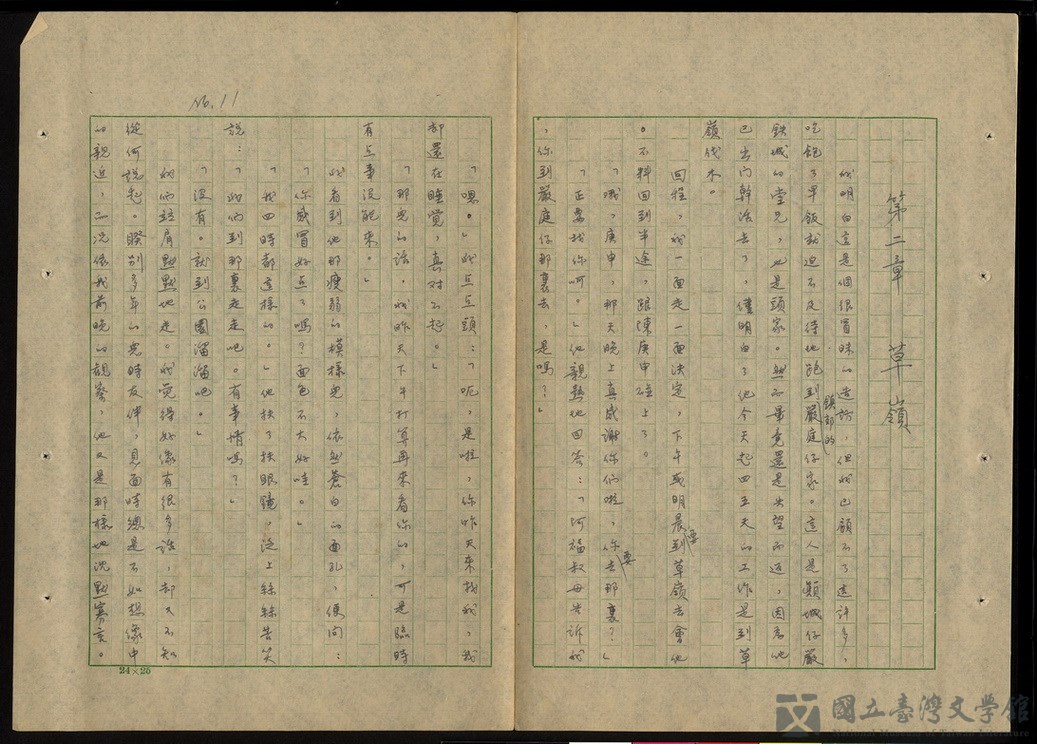 第二章 草嶺
我明白這是個很冒昧的造訪，但我已顧不了這許多，
吃飽了早飯就迫不及待地跑到嚴庭仔家。這人是
鎮郊的
鉄城的堂兄，也是頭家。然而畢竟還是失望而返，因為他
已出門幹活去了，僅明白了他今天起四五天的工作是到草
嶺伐木。
回程，我一面走一面決定，下午或明晨要到草嶺去會他
。不料回到半途，跟陳庚申碰上了。
「哦，庚申，那天晚上真感謝你們啦，你要去那裏？」
「正要找你呵。」他親熱地回答：「阿福叔母告訴我
，你到嚴庭仔那裏去，是嗎？」
No. 11
「嗯。」我点点頭：「呃，是啦，你昨天來找我，我
却還在睡覺，真对不起。」
「那兒的話，我昨天下午打算再來看你的，可是臨時
有点事没能來。」
我看到他那瘦弱的模樣兒，依然蒼白的面孔，便問：
「你感冒好点了嗎？面色不大好哇。」
「我四時都這樣的。」他扶了扶眼鏡，泛上絲絲苦笑
說：「我們到那裏走走吧。有事情嗎？」
「没有。就到公園溜溜吧。」
我們並肩默默地走。我覺得好像有很多話，却又不知
從何說起。睽別多年的兒時友伴，見面時總是不如想像中
的親近，而況依我前晚的觀察，他又是那樣地沈默寡言。
24×25
國立臺灣文學館
National Museum of Taiwan Literature